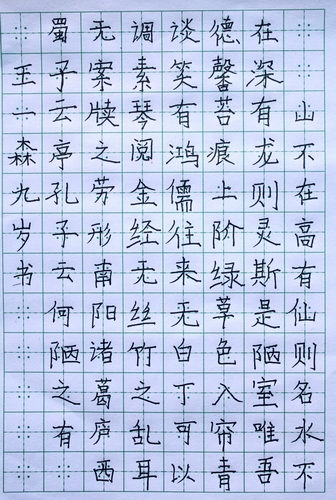 山不在高有仙则名水不
在深有龙则灵斯是陋室唯吾
德馨苔痕上阶绿草色入帘青
谈笑有鸿儒往来无白丁可以
调素琴阅金经无丝竹之乱耳
无案牍之劳形南阳诸葛庐西
蜀子云亭孔子云何陋之有
玉一森九岁书